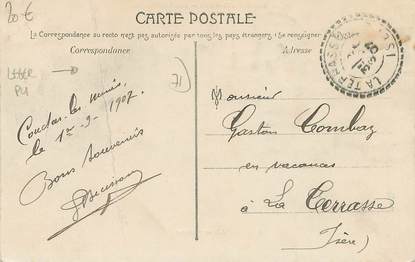 20€
CARTE POSTALE
La Correspondance au recto n'est pas autorisée par tous les pays étrangers: Se renseigner
Correspondance
Adresse
pli
71
les mines
le 1er-9-1907.
Bons souvenirs
LA TERRASSE
Monsieur
Gaston Combaz
en vacances
à La Terrasse
(Isère)